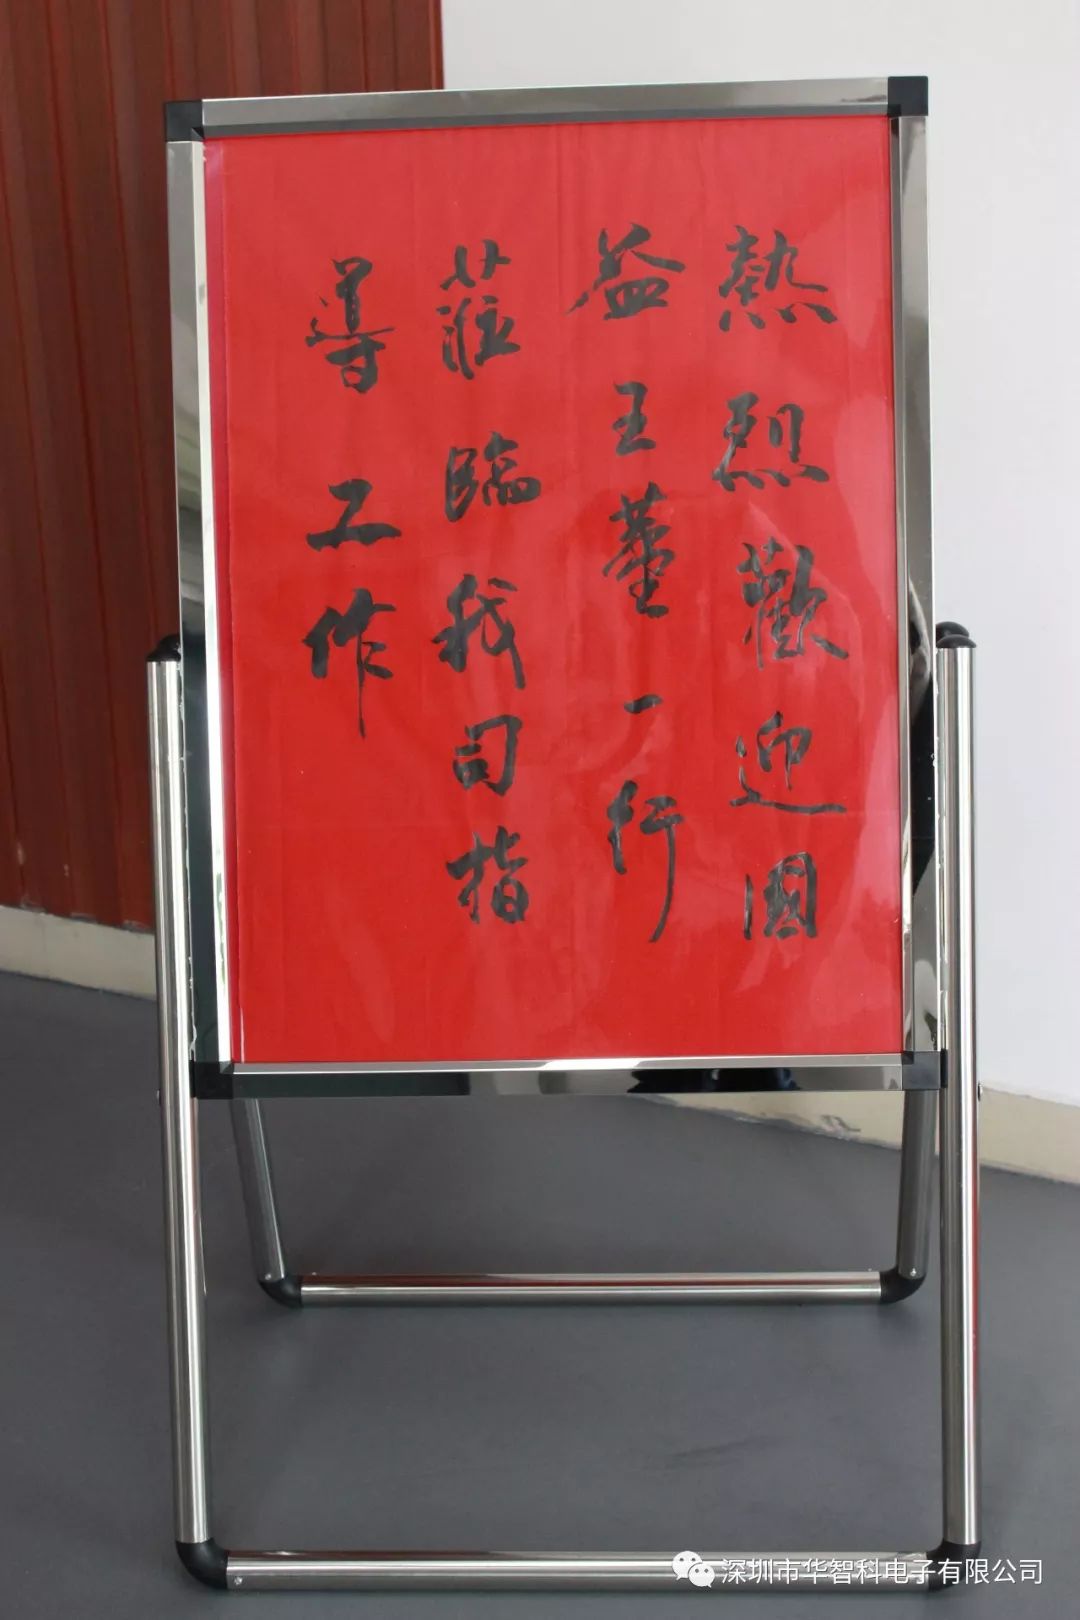 熱烈歡迎國
益王董一行
蒞臨我司指
導工作
深圳市华智科电子有限公司